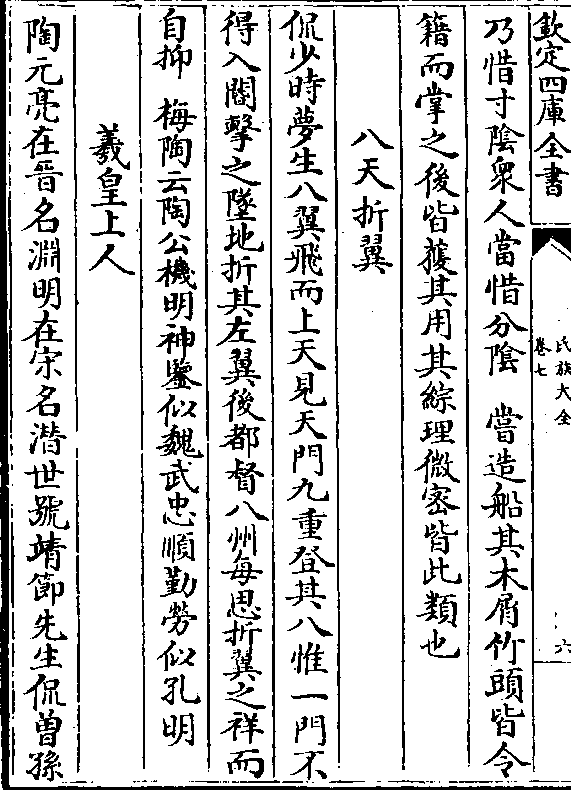 欽定四庫全書
氏族大全
卷七
六
乃惜寸陰衆人當惜分陰　嘗造船其木屑竹頭皆令
籍而掌之後皆獲其用其綜理微密皆此類也
八天折翼
侃少時夢生八翼飛而上天見天門九重登其八惟一門不
得入閽擊之墜地折其左翼後都督八州每思折翼之祥而
自抑　梅陶云陶公機明神鑒似魏武忠順勤勞似孔明
羲皇上人
陶元亮在晉名淵明在宋名潛世號靖節先生侃曾孫